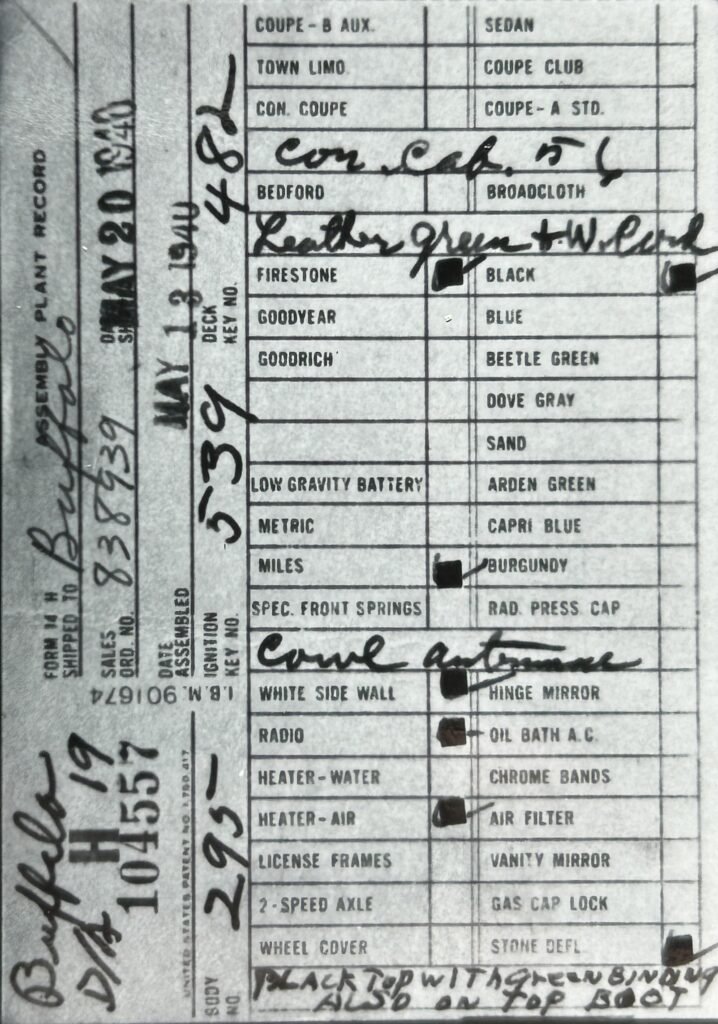 COUPE - B AUX. SEDAN
TOWN LIMO. COUPE CLUB
CON. COUPE COUPE - A STD.
Con. Cab. 56
BEDFORD BROADCLOTH
Leather green & W. Cord
FIRESTONE BLACK
GOODYEAR BLUE
GOODRICH BEETLE GREEN
DOVE GRAY
SAND
LOW GRAVITY BATTERY ARDEN GREEN
METRIC CAPRI BLUE
MILES BURGUNDY
SPEC. FRONT SPRINGS RAD. PRESS CAP
Cowl antennae
WHITE SIDE WALL HINGE MIRROR
RADIO OIL BATH A.C.
HEATER - WATER CHROME BANDS
HEATER - AIR AIR FILTER
LICENSE FRAMES VANITY MIRROR
2 - SPEED AXLE GAS CAP LOCK
WHEEL COVER STONE DEFL
BLACK TOP WITH GREEN BINDING
ALSO ON TOP BOOT
Buffalo
D/A H 19
104557
UNITED STATES PATENT NO.
I.B.M. 901674
FORM 14 H ASSEMBLY PLANT RECORD
SHIPPED TO Buffalo
SALES ORD. NO. 838939 MAY 20 1940
DATE ASSEMBLED MAY 13 1940
BODY NO. 295 IGNITION KEY NO. 539 DECK KEY NO. 482